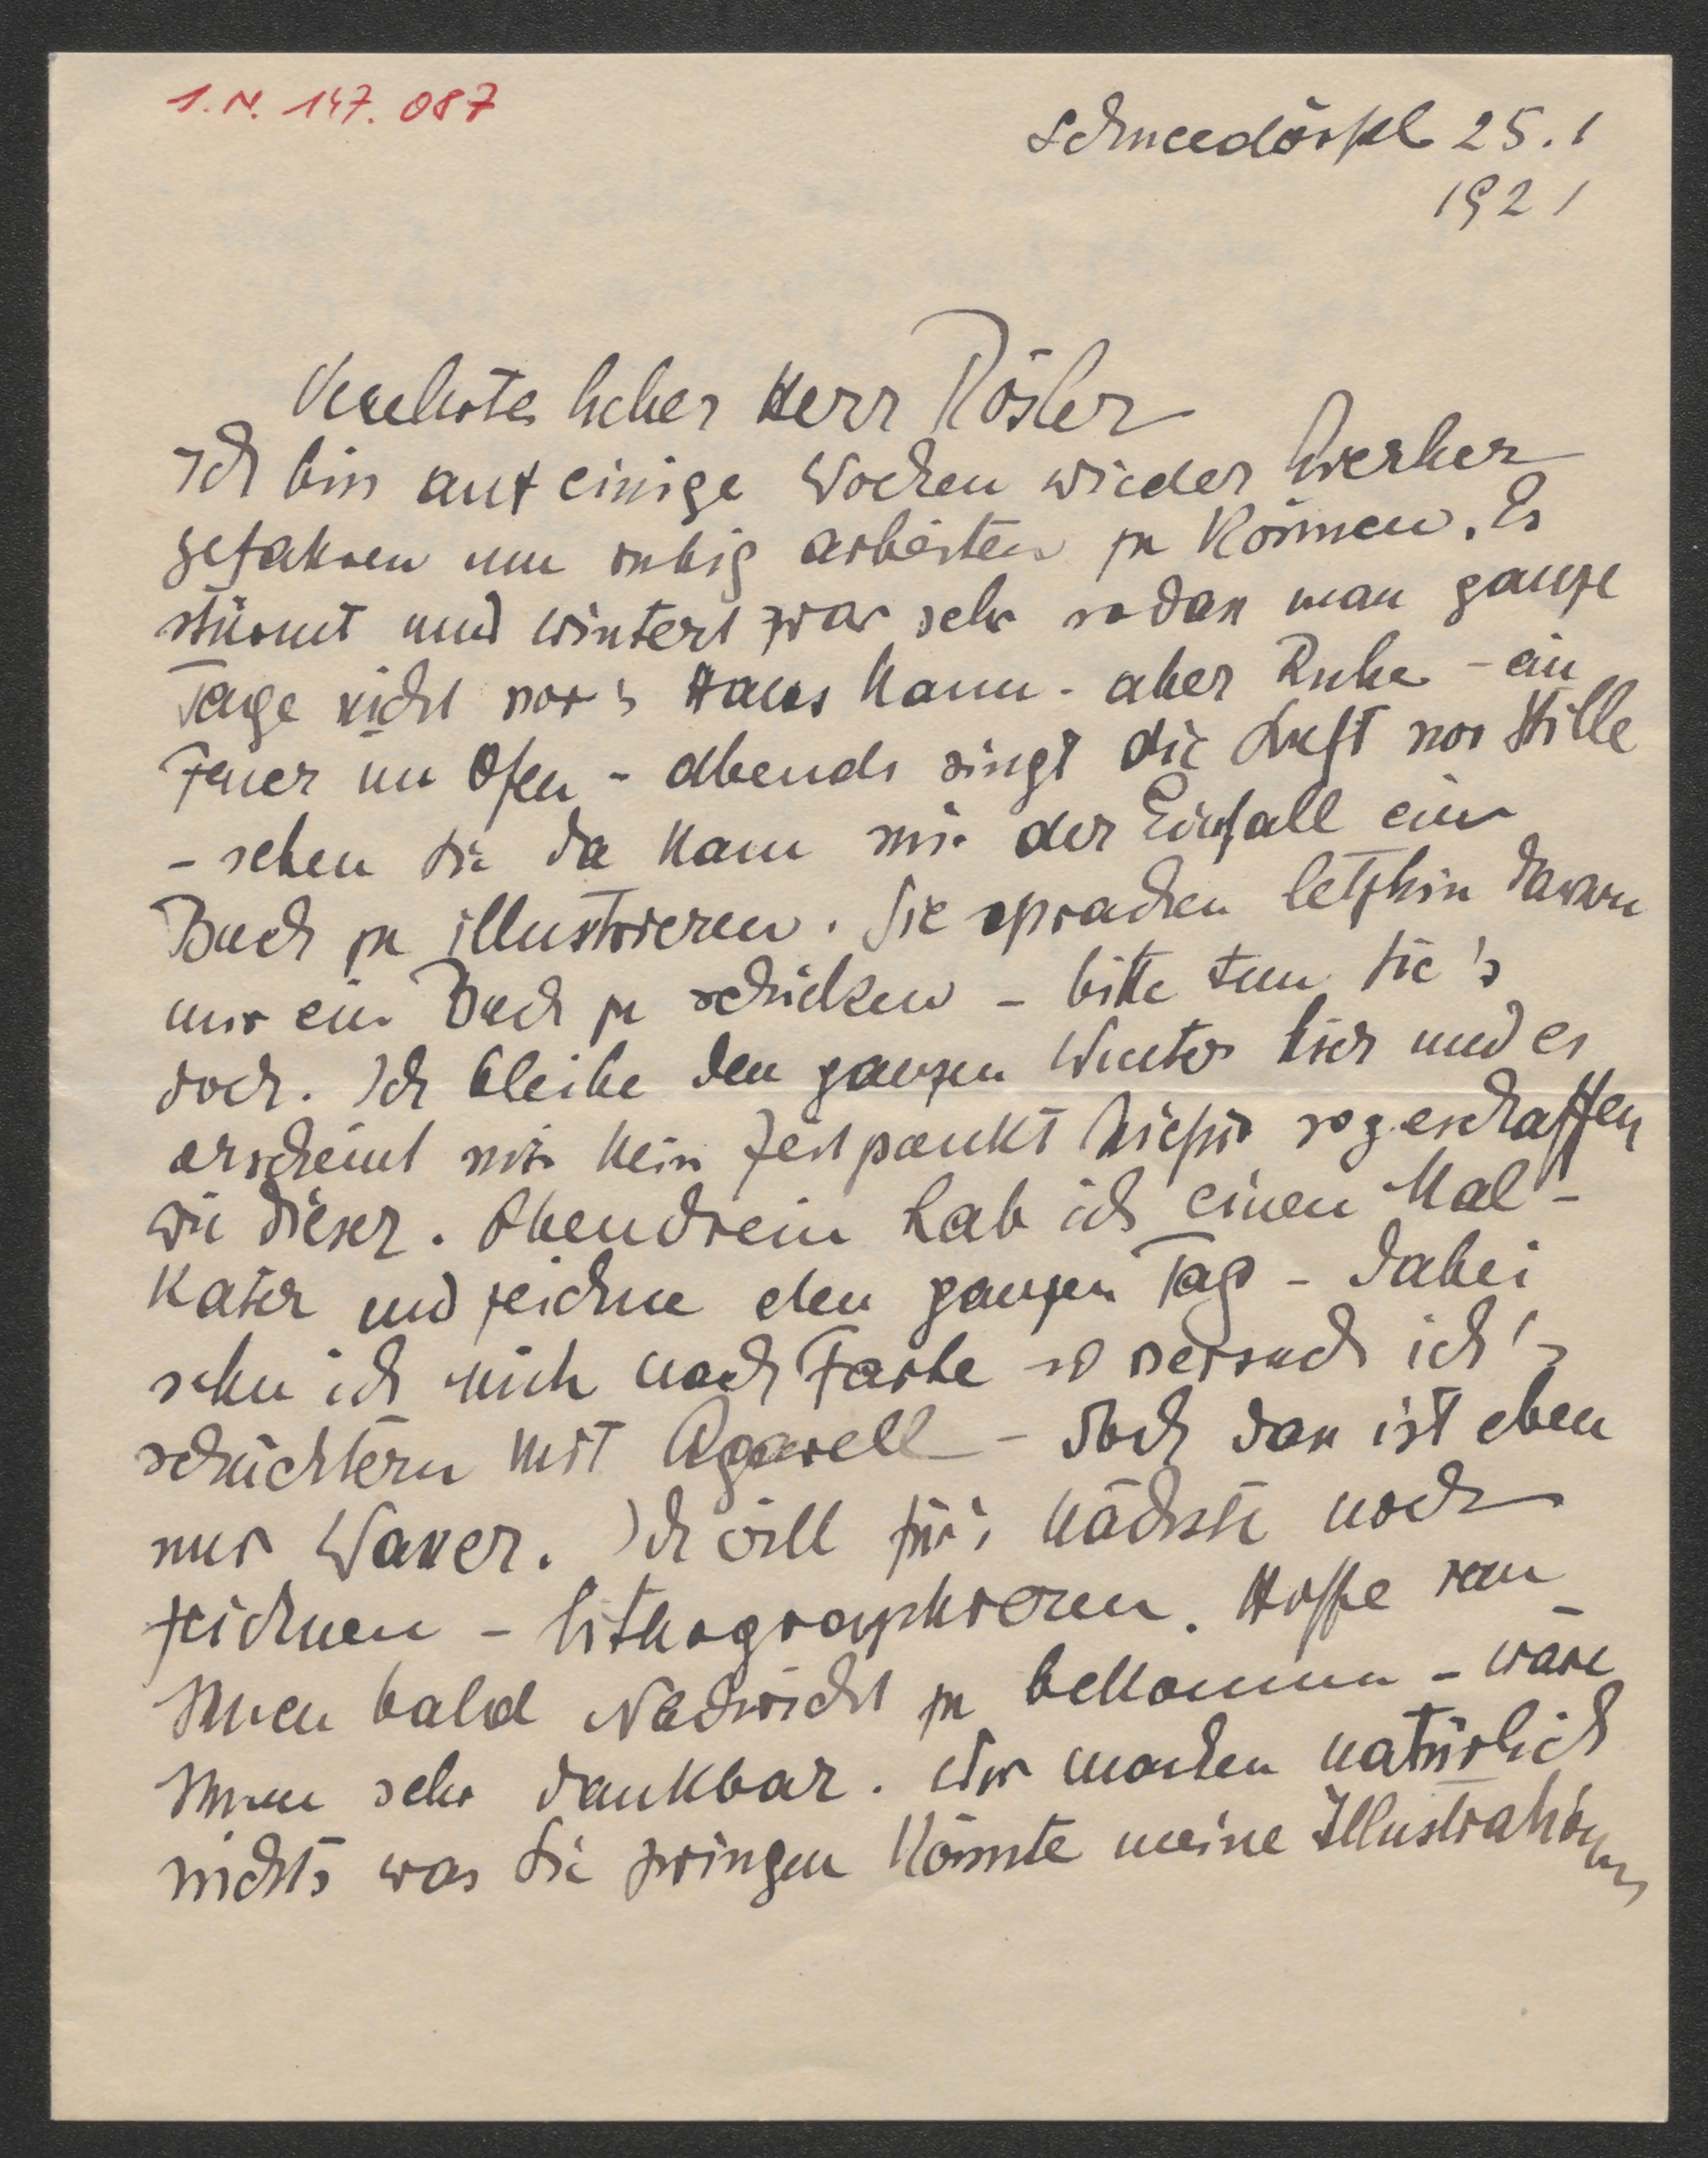 I.N. 147.087
Schneedörfel 25.1
1921
Verehrter lieber Herr Rösler
Ich bin auf einige Wochen wieder hierher
gefahren um ruhig arbeiten zu können. Es
stürmt und wintert zwar sehr sodass man ganze
Tage nicht vor's Haus kann - aber Ruhe - ein
Feuer im Ofen - abends singt die Luft vor Stille
- sehen Sie da kam mir der Einfall ein
Buch zu illustrieren. Sie sprachen letzhin davon
mir ein Buch zu schicken - bitte tun Sie's
doch. Ich bleibe den ganzen Winter hier und es
erscheint mir kein Zeitpunkt hiefür so geschaffen
wie dieser. Obendrein hab ich einen Mal-
kater und zeichne den ganzen Tag - dabei
sehn ich mich nach Farbe so versuch ich's
schüchtern mit Aqarell - doch dass ist eben
nur Wasser. Ich will für's nächste noch
zeichnen - lithographieren. Hoffe von
Ihnen bald Nachricht zu bekommen - wäre
Ihnen sehr dankbar. Wir machen natürlich
nichts was Sie zwingen könnte meine Illustrationen